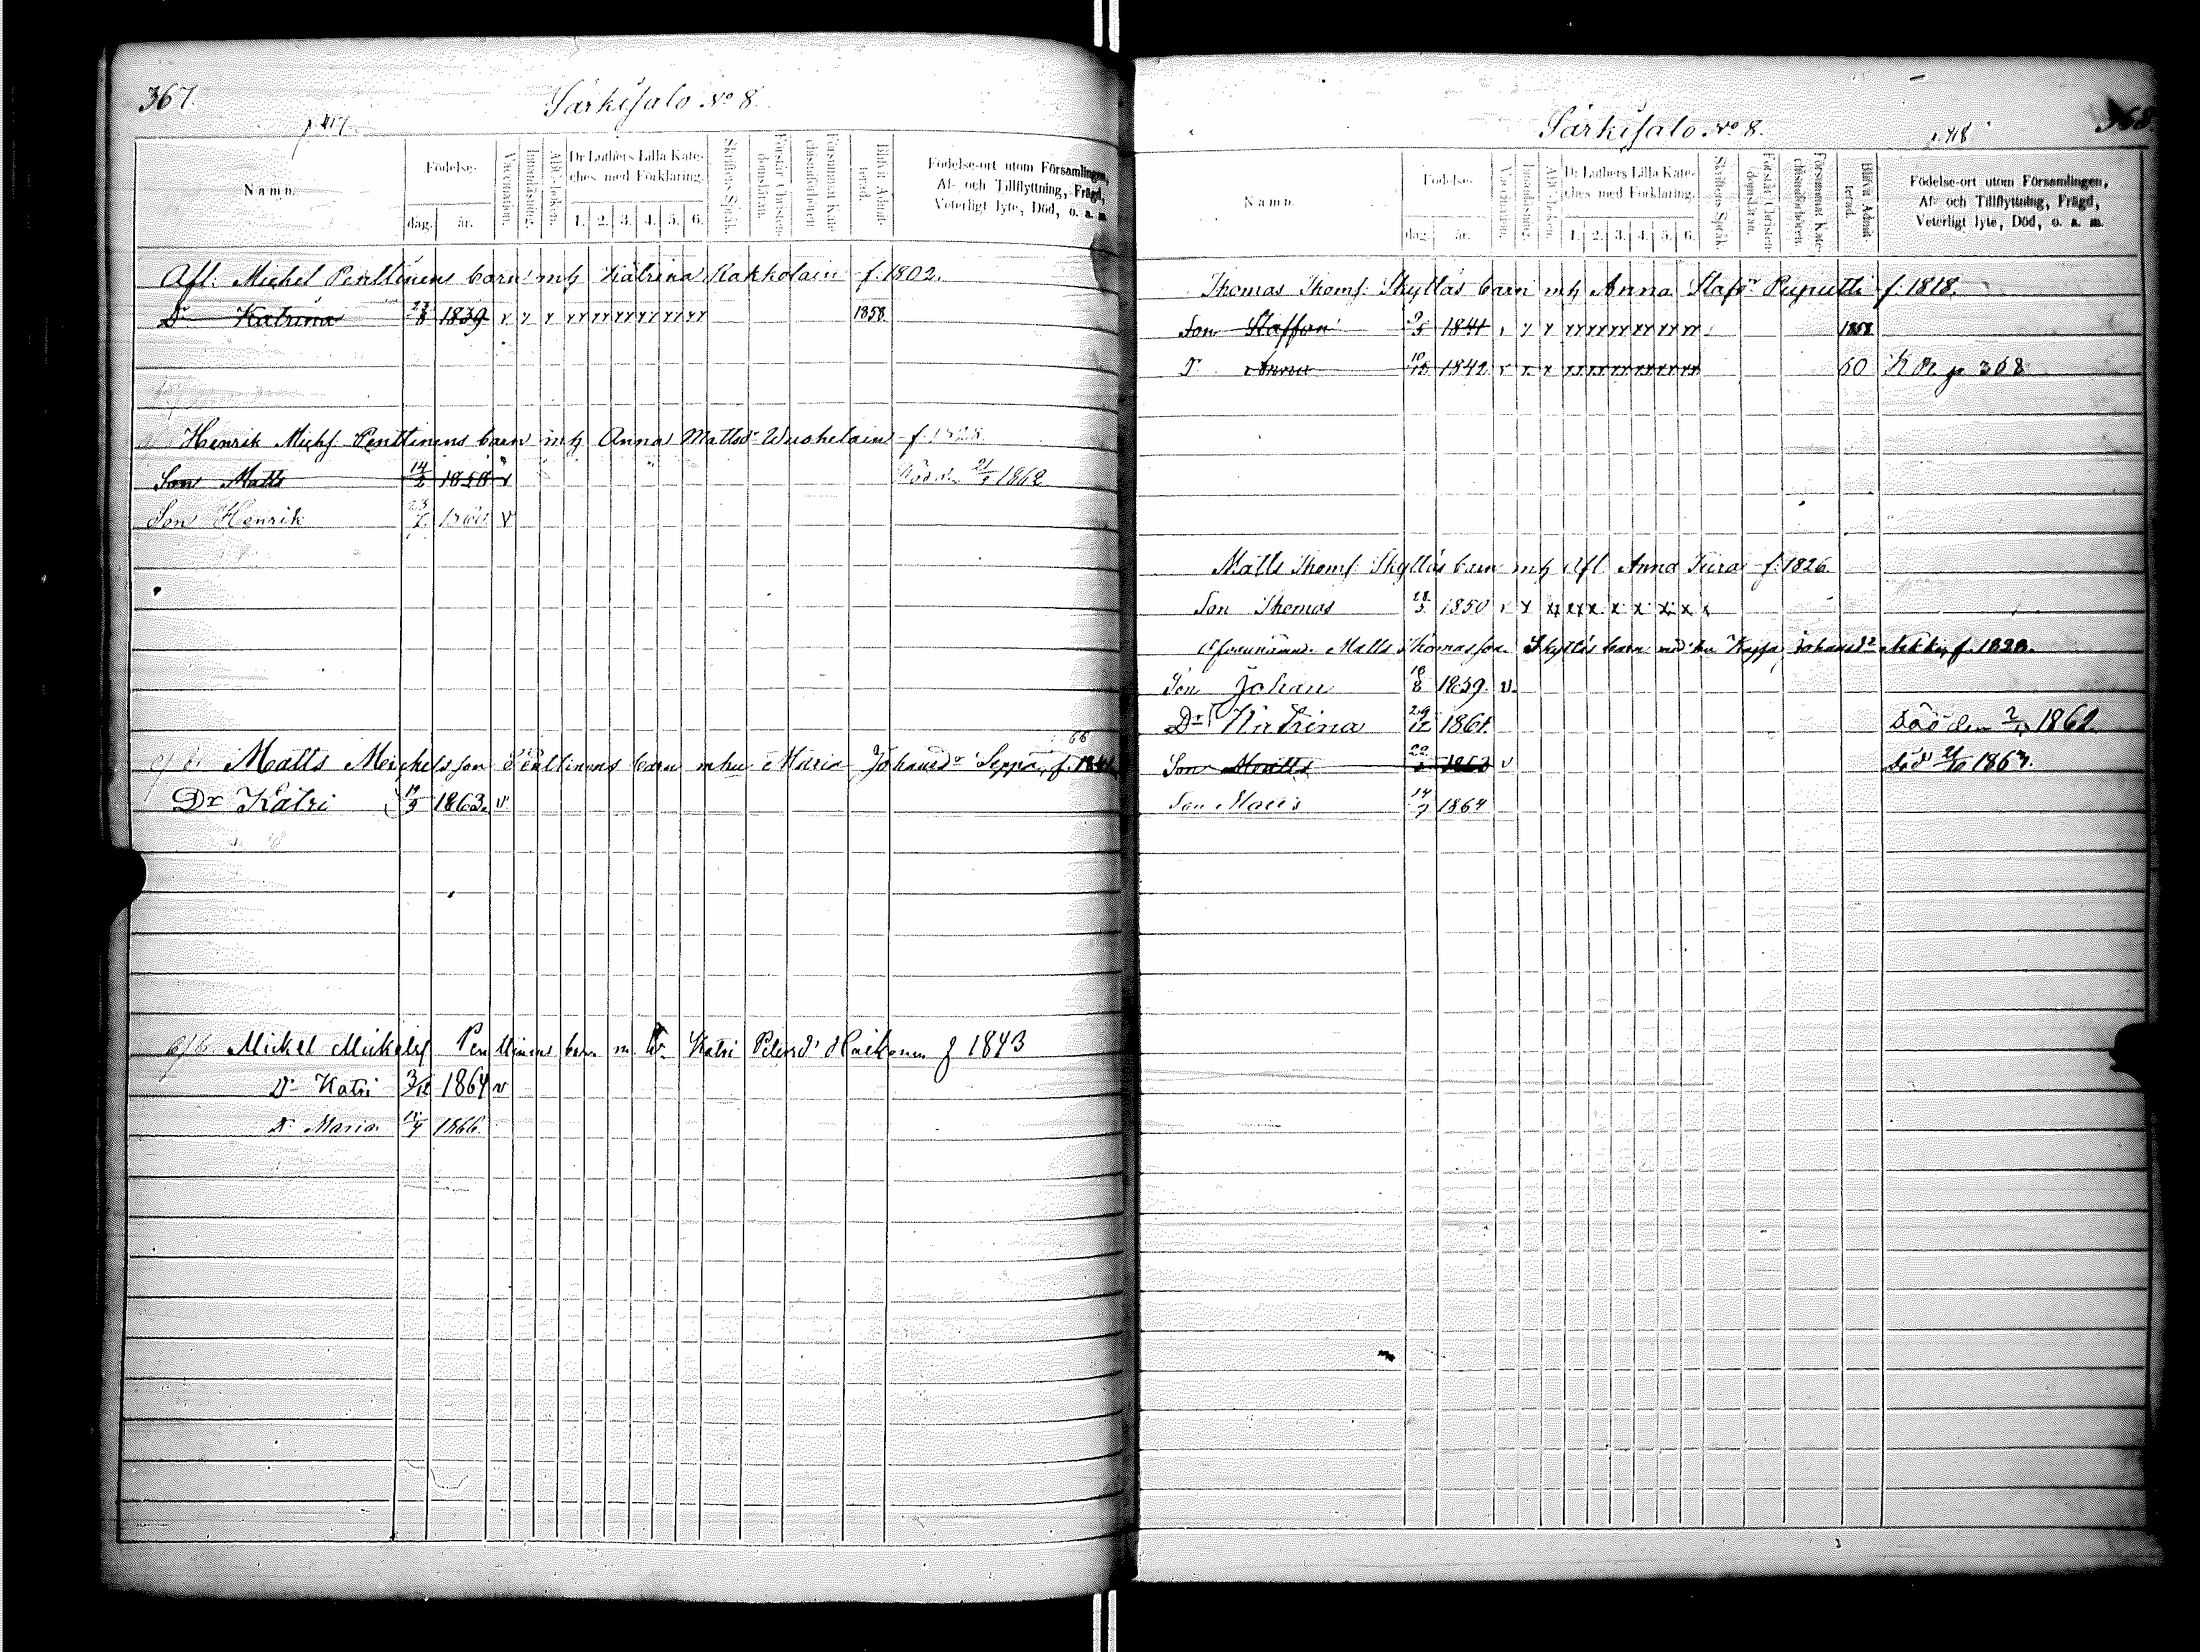 367.
Särkisalo No 8.
p. 417
Namn.
Födelse-
dag.
år.
Vaccination.
Innanläsning.
Abc-boken.
Dr Luthers Lilla Kate-
ches med Förklaring.
1. 2. 3. 4. 5. 6.
Skriftens Språk.
Förstår Christen-
domsläran.
Försummat Kate-
chismiförhören.
Blifvit Admit-
terad.
Födelse-ort utom Församlingen,
Af- och Tillflyttning, Frägd,
Veterligt lyte, Död, o. a. m.
Afl. Michel Penttinens barn mh Katrina Kakkolain f. 1802.
Dr Katrina 23/8 1839 1858
Henrik Michs. Penttinens barn mh Anna Mattsdr f.
Son Matts 14/3 1858 v Död d. 21/ 1862
Son Henrik 1860 v
Matts Michelsson Penttinens barn mhu Maria Johansdr Seppä, f.
Dr Katri 1863. v.
Mickel Mickelss Penttinens barn m. h. Katri Petersdr f 1843
Dr Katri 3/12 1864 v
Dr Maria 1866.
368
Särkisalo No 8.
p. 418
Namn.
Födelse-
dag.
år.
Vaccination.
Innanläsning.
Abc-boken.
Dr Luthers Lilla Kate-
ches med Förklaring.
1. 2. 3. 4. 5. 6.
Skriftens Språk.
Förstår Christen-
domsläran.
Försummat Kate-
chismiförhören.
Blifvit Admit-
terad.
Födelse-ort utom Församlingen,
Af- och Tillflyttning, Frägd,
Veterligt lyte, Död, o. a. m.
Thomas Thoms. Skyttäs barn mh Anna Stafsdr Puputti f. 1818.
Son Staffan 9/5 1841 1858
Dr Anna 10/12 1842 60 p 368
Matts Thoms. Skyttäs barn mh Afl. Anna Kura f. 1826
Son Thomas 28/3 1850
Ofvannämnde Matts Thomasson Skyttäs barn med hu Kajsa Johansdr f. 1828.
Son Johan 18/8 1859. v.
Dr Katrina 29/12 1861. Död den 1862.
Son Matts 1863 v Död 1863.
Son Matts 14/7 1864